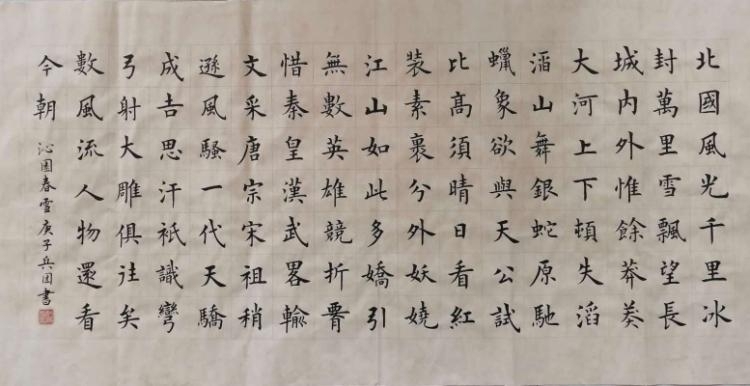 北國風光千里冰
封萬里雪飄望長
城内外惟餘莽莽
大河上下頓失滔
滔山舞銀蛇原馳
蠟象欲與天公試
比高須晴日看紅
装素裹分外妖嬈
江山如此多嬌引
無數英雄競折腰
惜秦皇漢武畧輸
文采唐宗宋祖稍
遜風騷一代天驕
成吉思汗祇識彎
弓射大雕俱往矣
數風流人物還看
今朝
沁园春雪庚子兵書